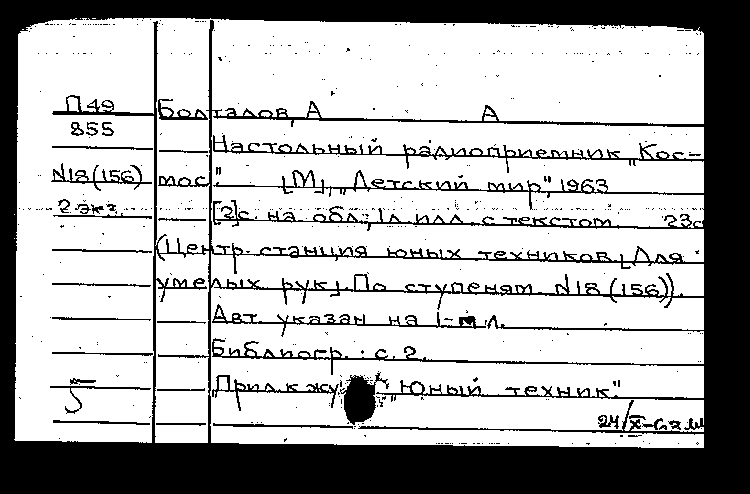 П49 Болталов, А А
855
Настольный радиоприемник „Кос-
N18(156) мос". [М], „Детский мир", 1963
2 экз. [2]с. на обл.; 1л илл. с текстом. 23с
(Центр. станция юных техников. [Для
умелых рук]. По ступеням N18 (156)).
Авт. указан на 1-м л.
Библиогр.: с. 2.
5 „Прил. к жу „Юный техник".